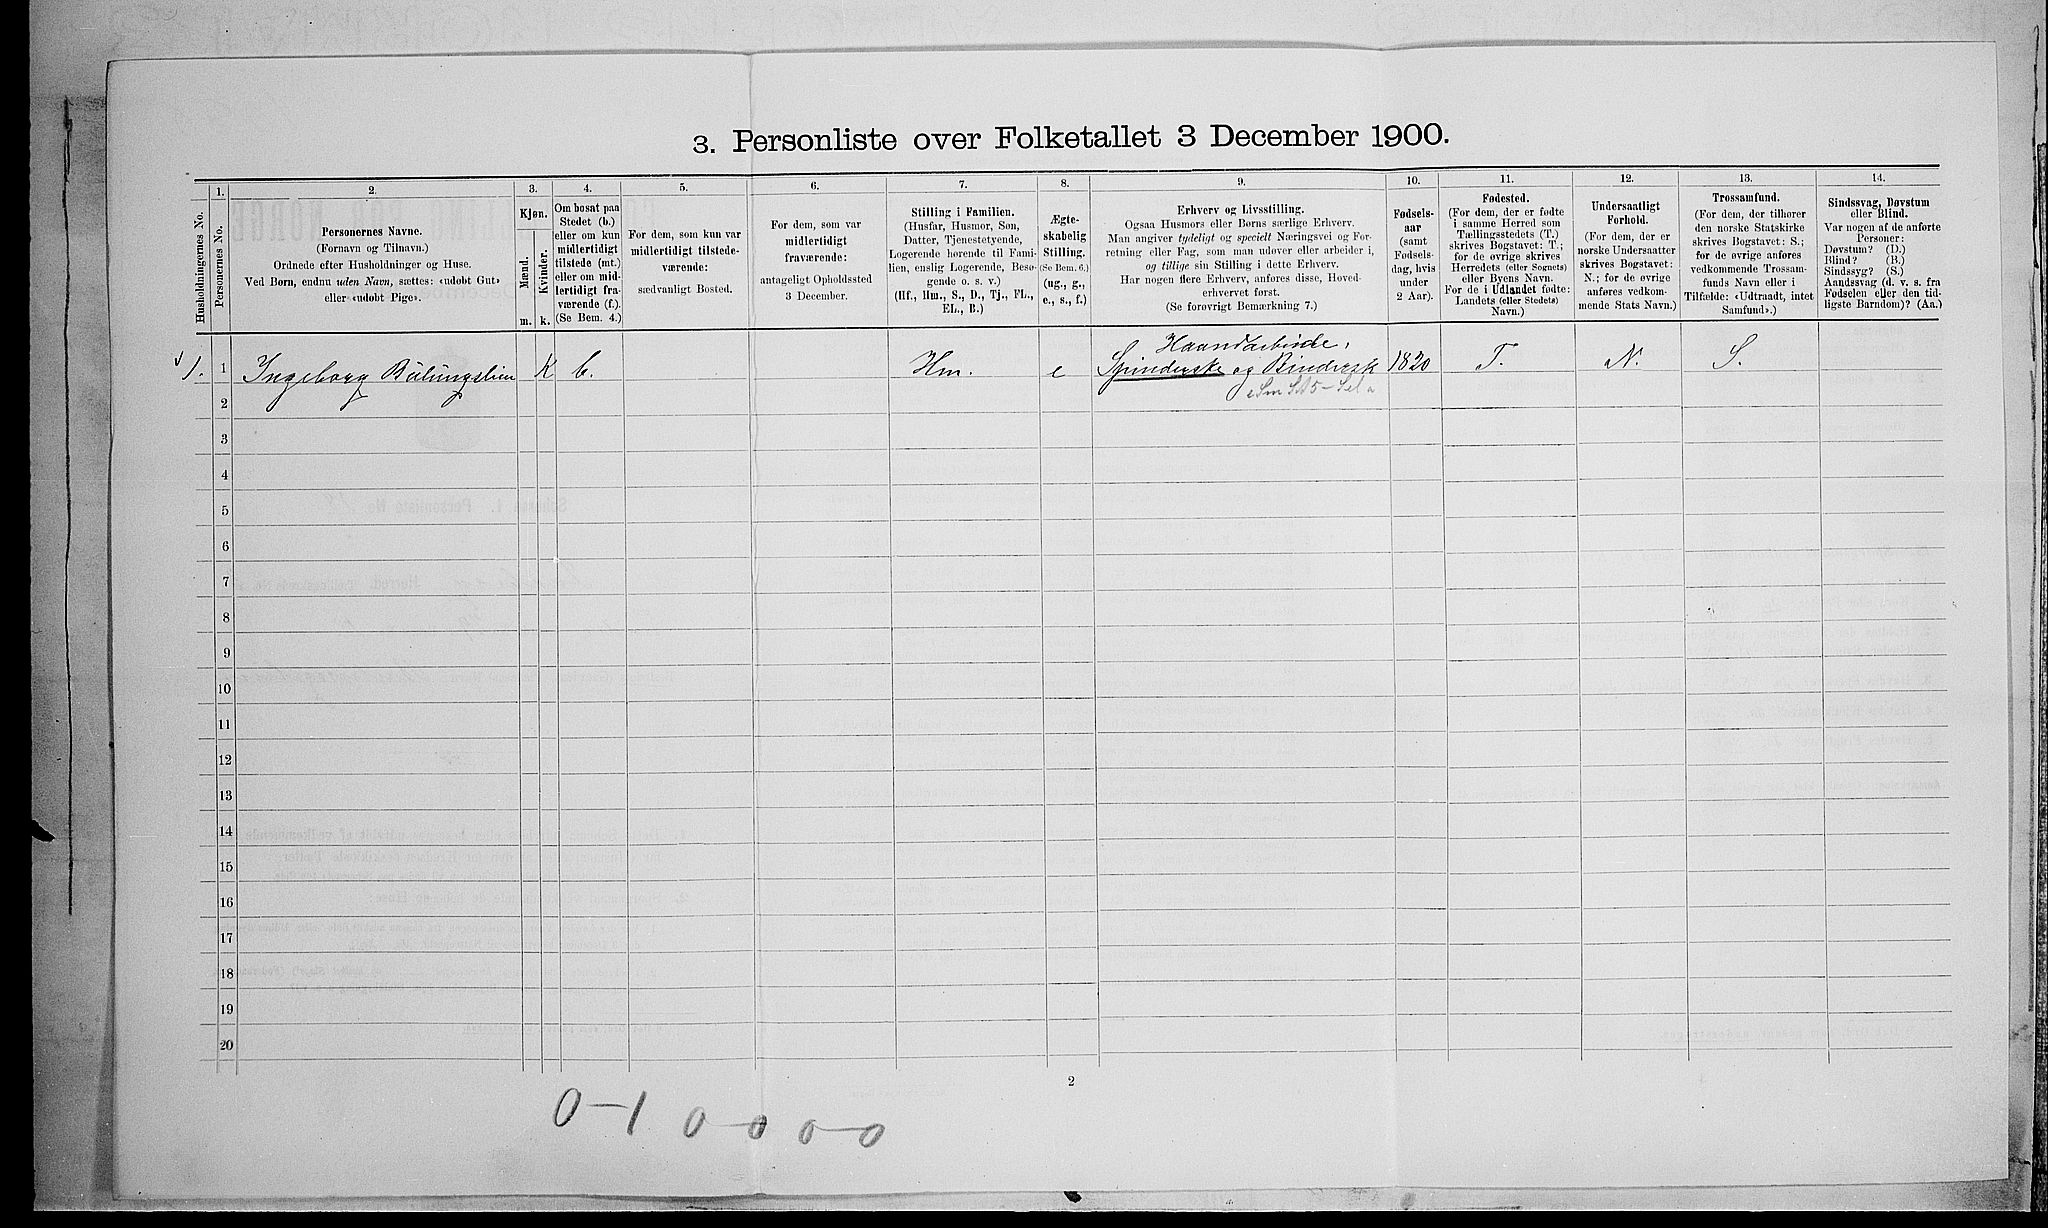 3. Personliste over Folketallet 3 December 1900.
2. 1. 2. 3. 4. 5. 6. 7. 8. 9. 10. 11. 12. 13. 14.
Husholdningernes No.
Personernes No.
Personernes Navne.
(Fornavn og Tilnavn.)
Ordnede efter Husholdninger og Huse.
Ved Børn, endnu uden Navn, sættes: «udobt Gut»
eller «udobt Pige».
Kjøn.
Mænd.
Kvinder.
m. k.
Om bosat paa
Stedet (b.)
eller om kun
midlertidigt
tilstede (mt.)
eller om mid-
lertidigt fra-
værende (f.).
(Se Bem. 4.)
For dem, som kun var
midlertidigt tilstede-
værende:
sædvanligt Bosted.
For dem, som var
midlertidigt
fraværende:
antageligt Opholdssted
3 December.
Stilling i Familien.
(Husfar, Husmor, Søn,
Datter, Tjenestetyende,
Logerende hørende til Fami-
lien, enslig Logerende, Besø-
gende o. s. v.)
(Hf., Hm., S., D., Tj., FL.,
EL., B.)
Ægte-
skabelig
Stilling.
(Se Bem. 6.)
(ug., g.,
e., s., f.)
Erhverv og Livsstilling.
Ogsaa Husmors eller Børns særlige Erhverv.
Man angiver tydeligt og specielt Næringsvei og For-
retning eller Fag, som man udøver eller arbeider i,
og tillige sin Stilling i dette Erhverv.
Har nogen flere Erhverv, anføres disse, Hoved-
erhvervet først.
(Se forøvrigt Bemærkning 7.)
Fødsels-
aar
(samt
Fødsels-
dag, hvis
under
2 Aar).
Fødested.
(For dem, der er fødte
i samme Herred som
Tællingsstedets (T.)
skrives Bogstavet: T.;
for de øvrige skrives
Herredets (eller Sognets)
eller Byens Navn.
For de i Udlandet fødte:
Landets (eller Stedets)
Navn.)
Undersaatligt
Forhold.
(For dem, der er
norske Undersaatter
skrives Bogstavet:
N.; for de øvrige
anføres vedkom-
mende Stats Navn.)
Trossamfund.
(For dem, der tilhører
den norske Statskirke
skrives Bogstavet: S.;
for de øvrige anføres
vedkommende Trossam-
funds Navn eller i
Tilfælde: «Udtraadt, intet
Samfund».)
Sindssvag, Døvstum
eller Blind.
Var nogen af de anførte
Personer:
Døvstum? (D.)
Blind? (B.)
Sindssyg? (S.)
Aandssvag (d. v. s. fra
Fødselen eller den tid-
ligste Barndom)? (Aa.)
Haandarbeide,
1. 1 Ingeborg K b. Hm. e Spinderske og 1820 T. N. S.
2
3
4
5
6
7
8
9
10
11
12
13
14
15
16
17
18
19
20
2
0-1 0-0 0-0